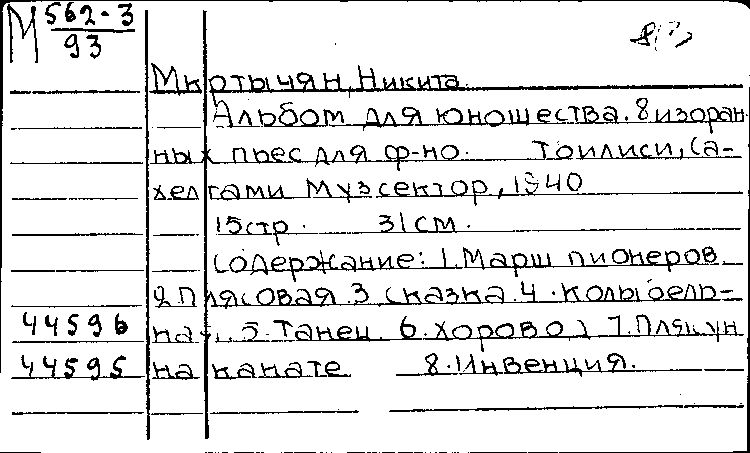 М 562-3
93
Мкртычян, Никита.
Альбом для юношества. 8 избран-
ных пьес для ф-но. Тбилиси, Са-
хелгами Музсектор, 1940
15стр. 31см.
Содержание: 1. Марш пионеров.
2. Плясовая 3. Сказка 4. Колыбель-
44596
ная. 5. Танец 6. Хоровод 7. Плясун
44595
на канате 8. Инвенция.